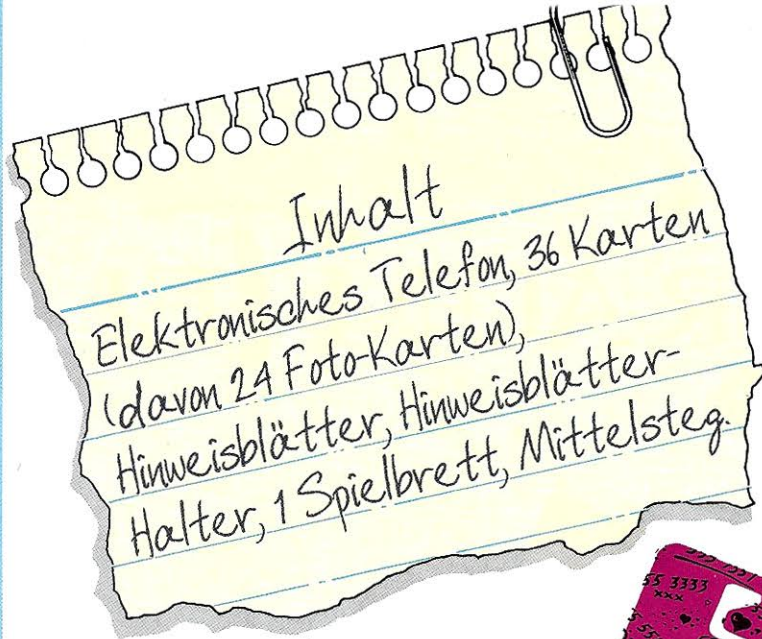 Inhalt
Elektronisches Telefon, 36 Karten
(davon 24 Foto-Karten),
Hinweisblätter, Hinweisblätter-
Halter, 1 Spielbrett, Mittelsteg.
55 3333
xxx